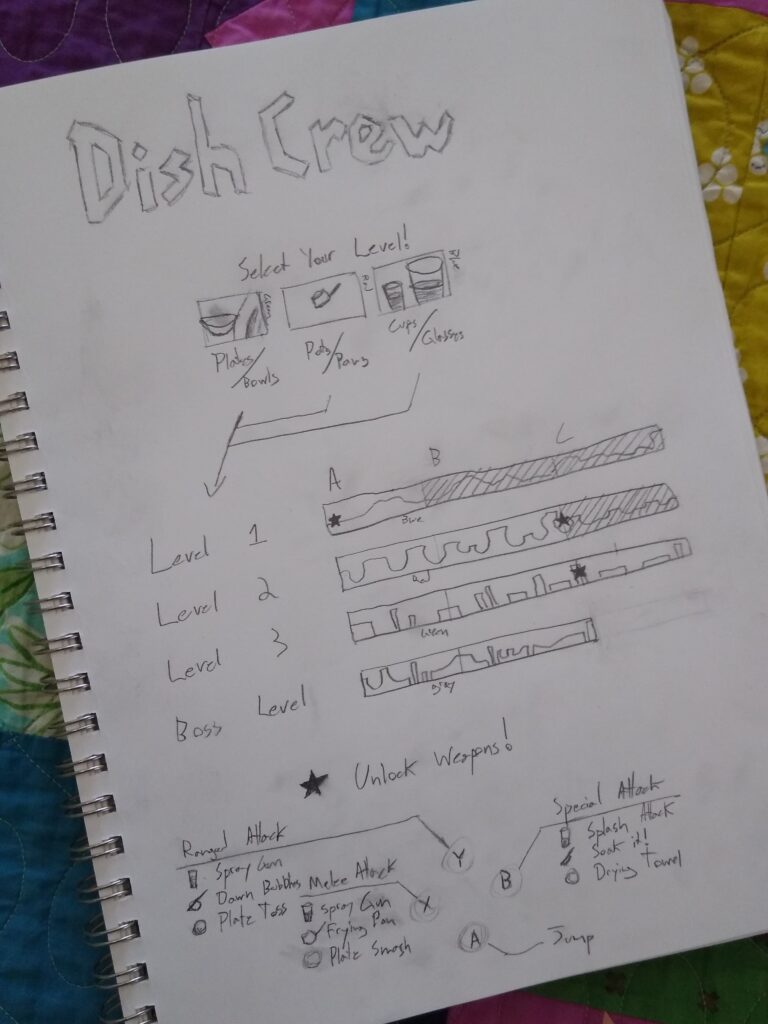 Dish Crew
Select Your Level!
Green
Red
Blue
Plates/Bowls
Pots/Pans
Cups/Glasses
A B C
Level 1
Blue
Level 2
Red
Level 3
Green
Boss Level
gray
★ Unlock Weapons!
Ranged Attack
Spray Gun
Dawn Bubbles
Plate Toss
Melee Attack
Spray Gun
Frying Pan
Plate Smash
Y
X
B
A
Jump
Special Attack
Splash Attack
Soak it!
Drying Towel